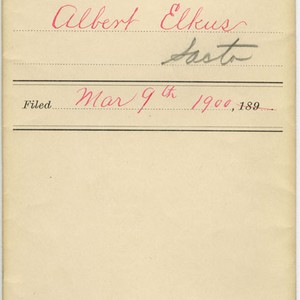 Albert Elkus
Sacto
Filed Mar 9th 1900, 189